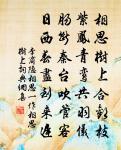 相思樹上合歡枝
紫鳳青鸞共羽儀
腸斷秦臺吹管客
日西春盡到來遲
李商隱相思一作相思
樹上詞典網集